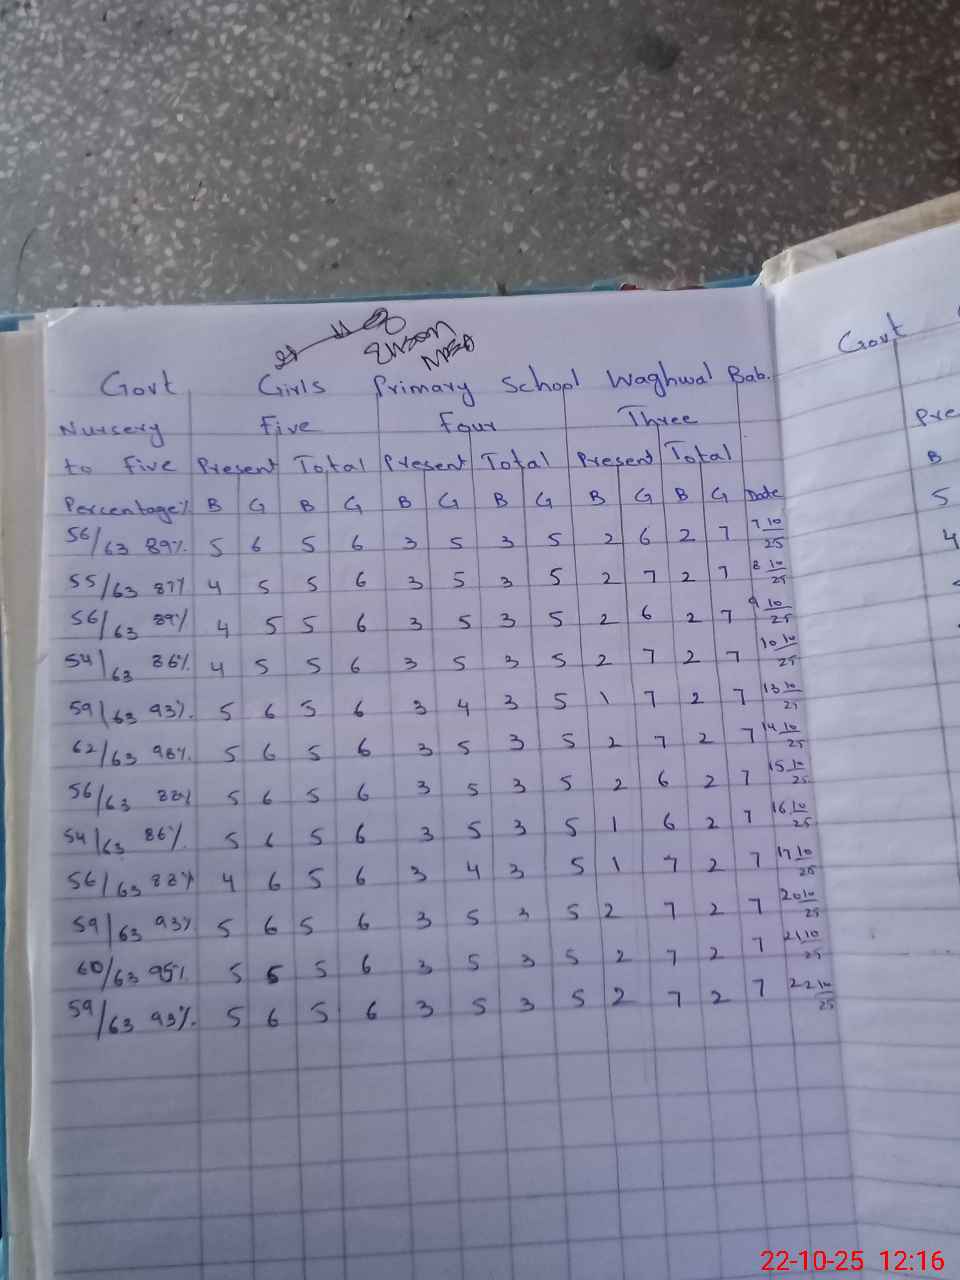 Govt Girls Primary School Waghwal Bab.
Nursery Five Four Three
to Five Present Total Present Total Present Total
Percentage% B G B G B G B G B G B G Date
56/63 89% 5 6 5 6 3 5 3 5 2 6 2 7 7 10/25
55/63 87% 4 5 5 6 3 5 3 5 2 7 2 7 8 10/25
56/63 89% 4 5 5 6 3 5 3 5 2 6 2 7 9 10/25
54/63 86% 4 5 5 6 3 5 3 5 2 7 2 7 10 10/25
59/63 93% 5 6 5 6 3 4 3 5 1 7 2 7 13 10/25
62/63 98% 5 6 5 6 3 5 3 5 2 7 2 7 14 10/25
56/63 88% 5 6 5 6 3 5 3 5 2 6 2 7 15 10/25
54/63 86% 5 6 5 6 3 5 3 5 1 6 2 7 16 10/25
56/63 88% 4 6 5 6 3 4 3 5 1 7 2 7 17 10/25
59/63 93% 5 6 5 6 3 5 3 5 2 7 2 7 20 10/25
60/63 95% 5 5 6 3 5 3 5 2 7 2 7 21 10/25
59/63 93% 5 6 5 6 3 5 3 5 2 7 2 7 22 10/25
Govt
Pre
B
5
4
22-10-25 12:16